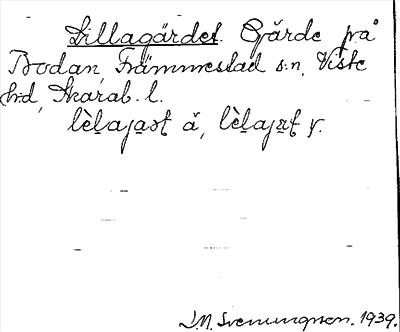 Lillagärdet. Gärde på
Bodan, Främmestad s:n, Viste
hrd, Skarab. l.
lèlajaət å, lèlajæt y.
J.M. Svenungson. 1939.